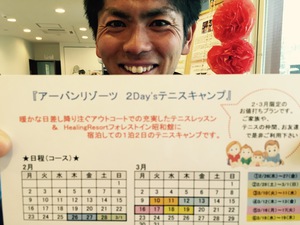 『アーバンリゾーツ 2Day'sテニスキャンプ』
暖かな日差し降り注ぐアウトコートでの充実したテニスレッスン
& HealingResortフォレストイン昭和館に
宿泊しての1泊2日のテニスキャンプです。
2・3月限定の
お値打ちプランです。
ご家族や、
テニスの仲間、お友達
で是非ご利用下さい!
★日程(コース)★
2月
月 火 水 木 金 土 日
1
2 3 4 5 6 7 8
9 10 11 12 13 14 15
16 17 18 19 20 21 22
23 24 25 26 27 28 3/1
3月
月 火 水 木 金 土 日
1
2 3 4 5 6 7 8
9 10 11 12 13 14 15
16 17 18 19 20 21 22